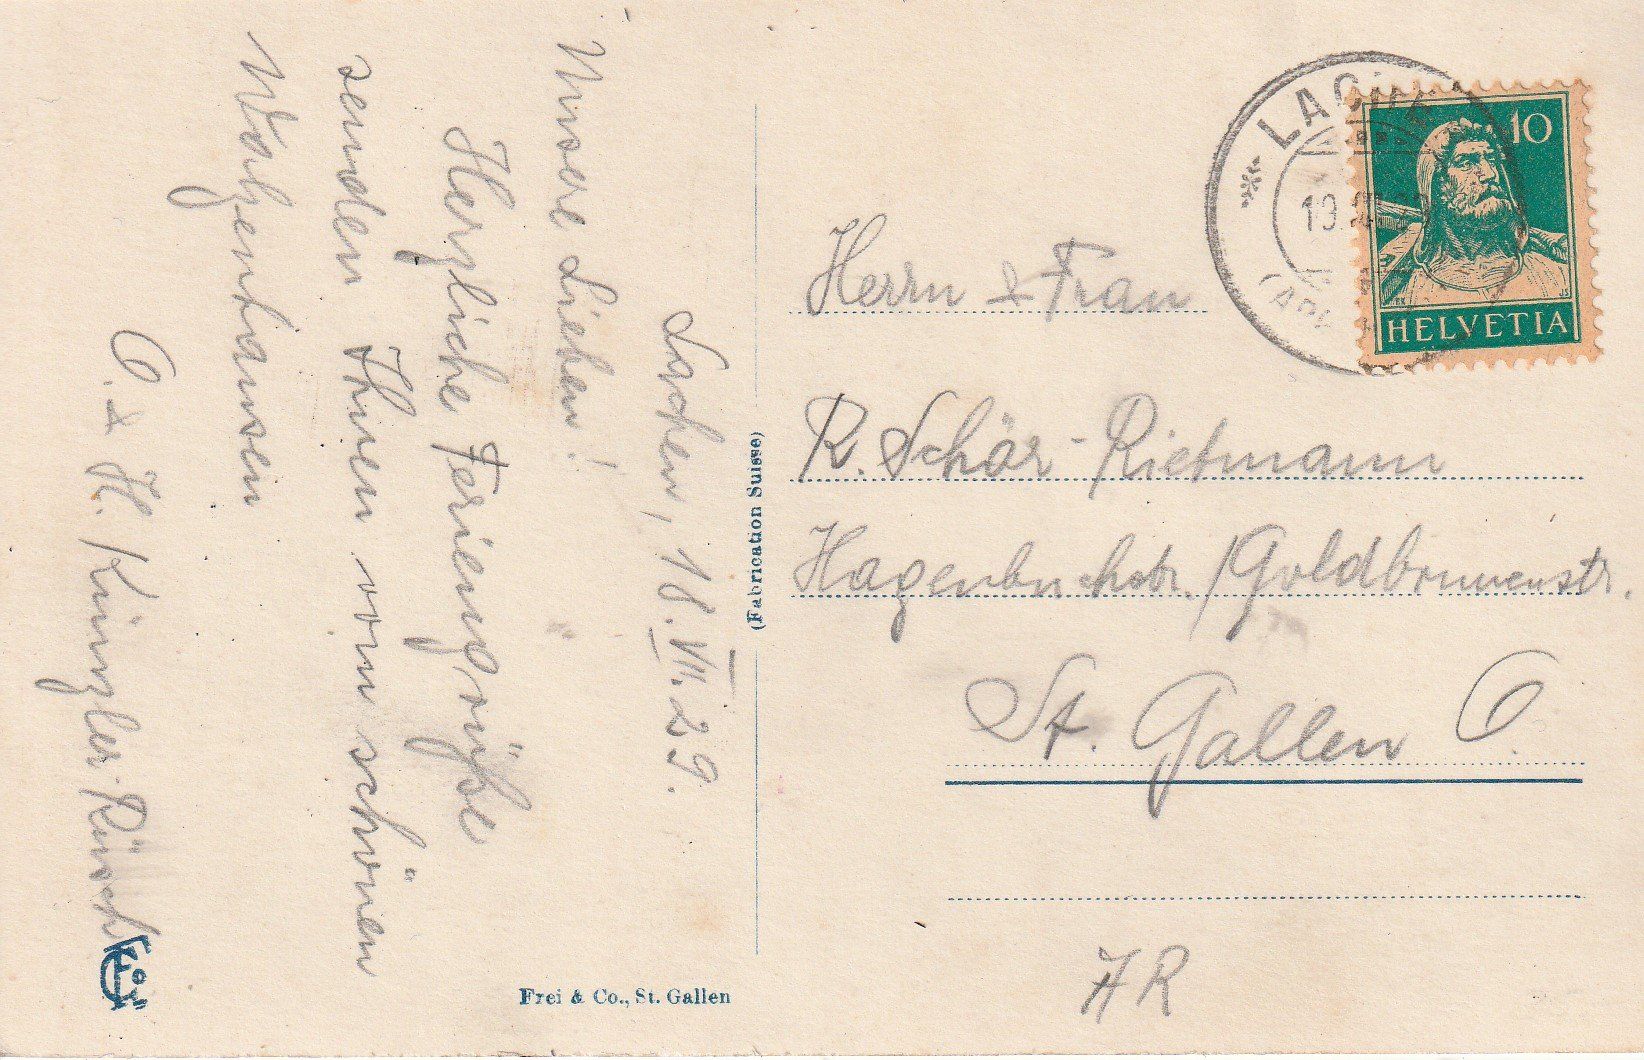 Lachen, 18.VII.29.
Unsere Lieben!
Herzliche Feriengrüße
senden Ihnen vom schönen
Walzenhausen
O. & H. Künzler-Rüesch
(Fabrication Suisse)
Frei & Co., St. Gallen
10
HELVETIA
Herrn & Frau
R. Schär-Rietmann
Hagenbuchstr./Goldbrunnenstr.
St. Gallen O.
AR